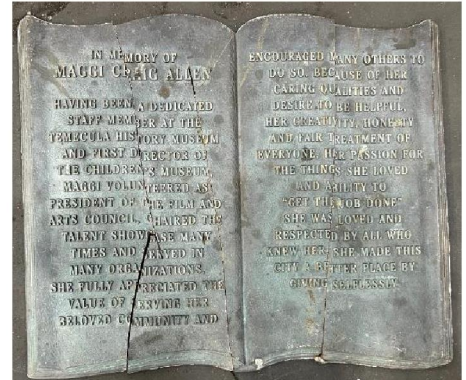 IN MEMORY OF
MAGGI CRAIG ALLEN
HAVING BEEN A DEDICATED
STAFF MEMBER AT THE
TEMECULA HISTORY MUSEUM
AND FIRST DIRECTOR OF
THE CHILDREN'S MUSEUM,
MAGGI VOLUNTEERED AS
PRESIDENT OF THE FILM AND
ARTS COUNCIL, CHAIRED THE
TALENT SHOWCASE MANY
TIMES AND SERVED IN
MANY ORGANIZATIONS.
SHE FULLY APPRECIATED THE
VALUE OF SERVING HER
BELOVED COMMUNITY AND
ENCOURAGED MANY OTHERS TO
DO SO. BECAUSE OF HER
CARING QUALITIES AND
DESIRE TO BE HELPFUL,
HER CREATIVITY, HONESTY
AND FAIR TREATMENT OF
EVERYONE, HER PASSION FOR
THE THINGS SHE LOVED
AND ABILITY TO
"GET THE JOB DONE"
SHE WAS LOVED AND
RESPECTED BY ALL WHO
KNEW HER. SHE MADE THIS
CITY A BETTER PLACE BY
GIVING SELFLESSLY.